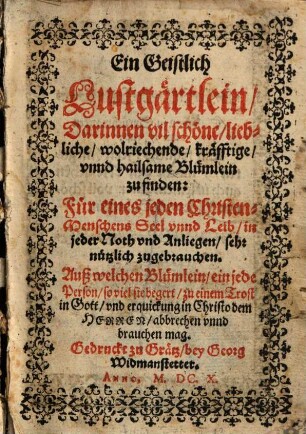 Ein Geistlich
Lustgärtlein/
Darinnen vil schöne/ lieb-
liche/ wolriechende/ kräfftige/
vnnd hailsame Blümlein
zu finden:
Für eines jeden Christen-
Menschens Seel vnnd Leib/ in
jeder Noth vnd Anliegen/ sehr
nützlich zugebrauchen.
Auß welchen Blümlein/ ein jede
Person/ so viel sie begert/ zu einem Trost
in Gott/ vnd erquickung in Christo dem
HERREN/ abbrechen vnnd
brauchen mag.
Gedruckt zu Grätz/ bey Georg
Widmanstetter.
ANNO, M. DC. X.